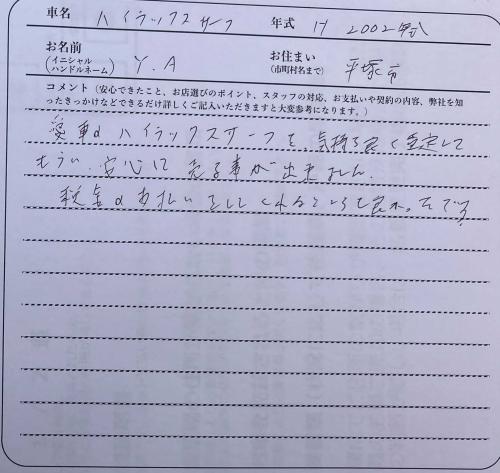 車名 ハイラックスサーフ 年式 H 2002年式
お名前
(イニシャル ハンドルネーム) Y.A お住まい (市町村名まで) 平塚市
コメント (安心できたこと、お店選びのポイント、スタッフの対応、お支払いや契約の内容、弊社を知
ったきっかけなどできるだけ詳しくご記入いただきますと大変参考になります。)
愛車のハイラックスサーフを、気持ち良く査定して
もらい、安心して売る事が出来ました。
税金のお払いをしてくれるところも良かったです。